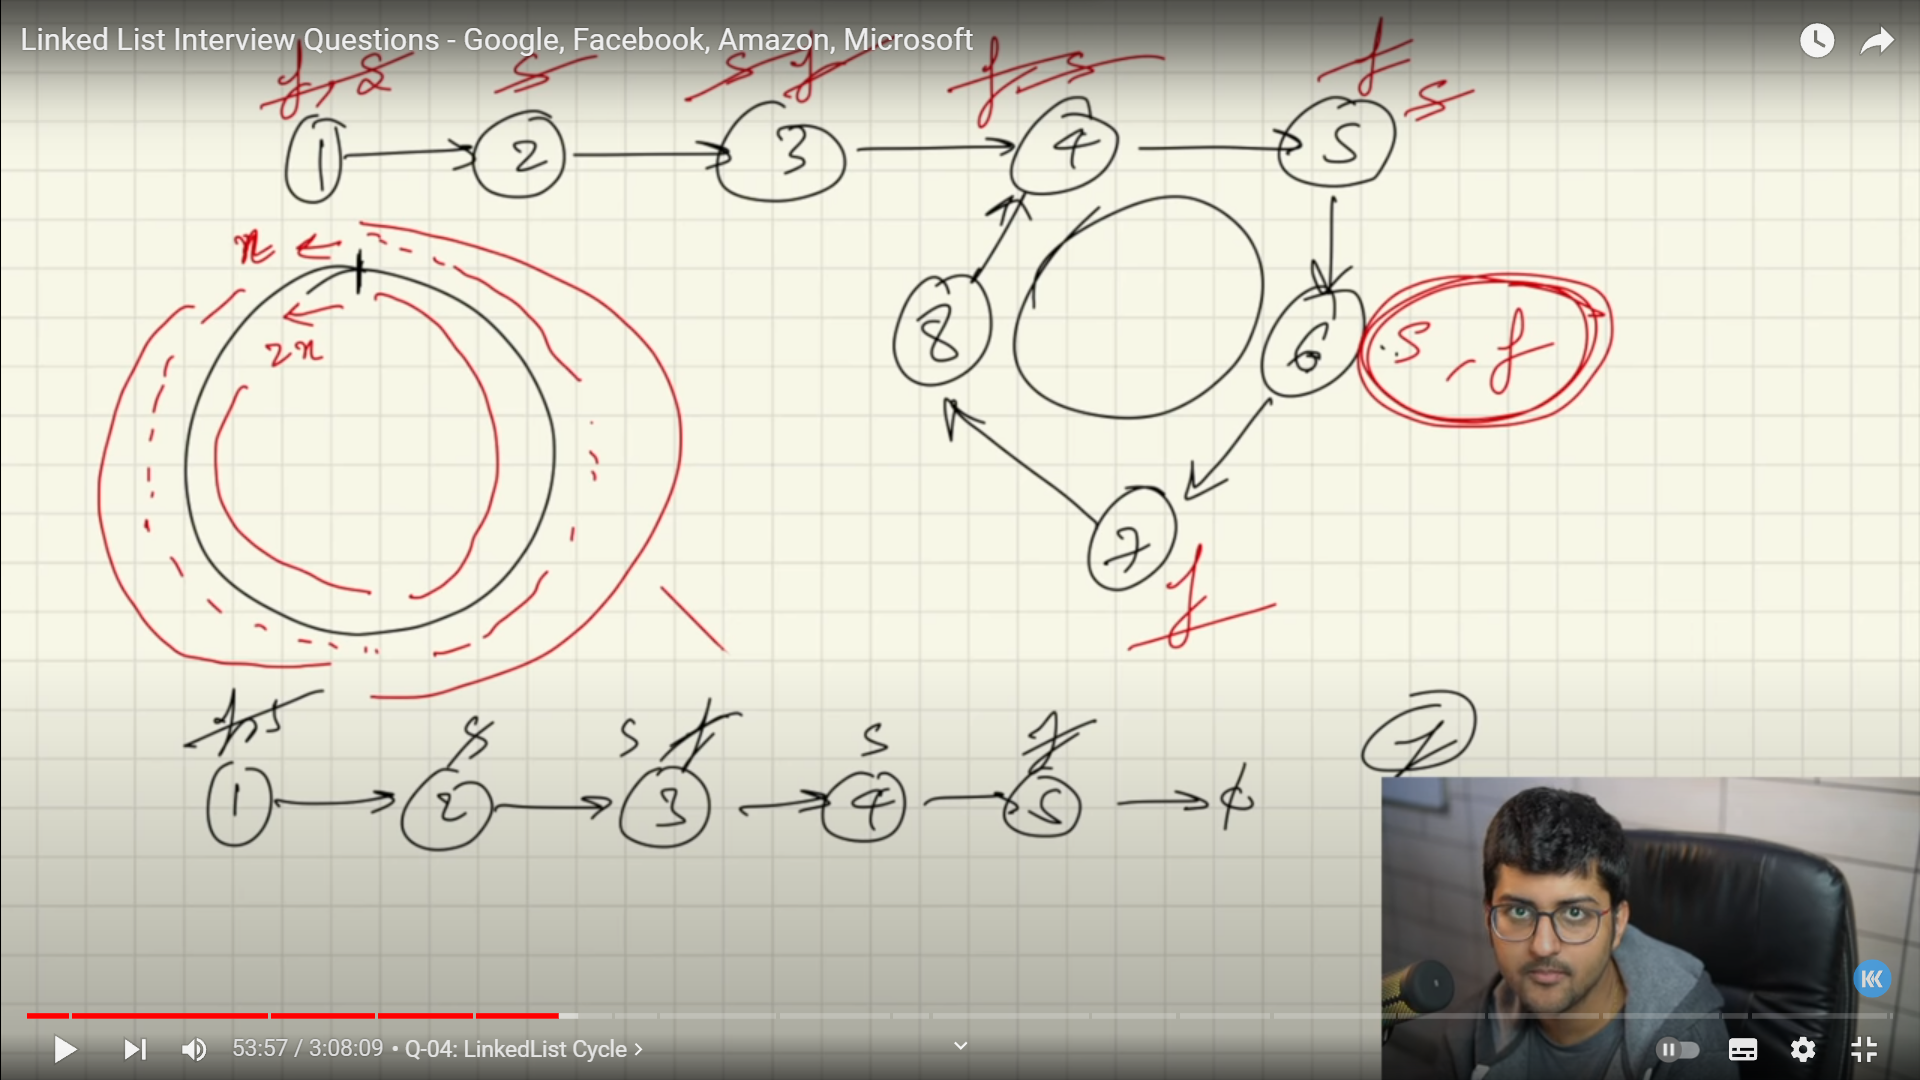 Linked List Interview Questions - Google, Facebook, Amazon, Microsoft
f, s s s f f, s f s
1 2 3 4 5
x
2x
8 6 s, f
7
f
f, s s s f s f f
1 2 3 4 5
53:57 / 3:08:09 • Q-04: LinkedList Cycle